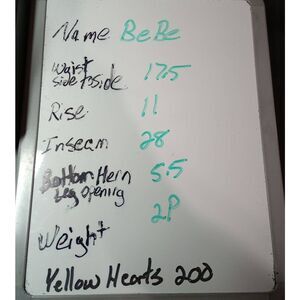 Name BeBe
Waist side to side 17.5
Rise 11
Inseam 28
Bottom Hem 5.5
Leg opening
Weight 2P
Yellow Hearts 200